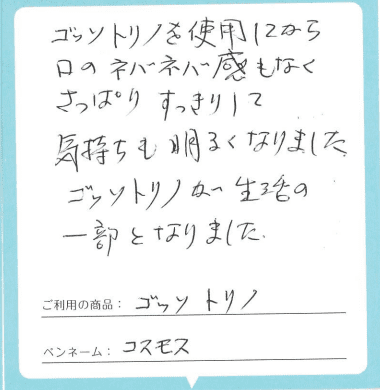 ゴッソトリノを使用してから
口のネバネバ感もなく
さっぱりすっきりして
気持ちも明るくなりました
ゴッソトリノが生活の
一部となりました.
ご利用の商品： ゴッソトリノ
ペンネーム： コスモス